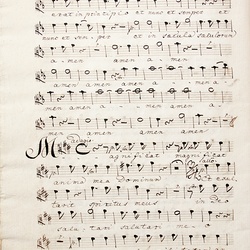 erat in principio et nunc et semper et
nunc et semper et in sæcula sæculorum
amen amen amen
amen amen amen amen a
men amen amen amen
men amen amen
Magnificat magnificat
anima mea Dominum et exul
tavit spiritus meus in Deo
salutari salutari meo